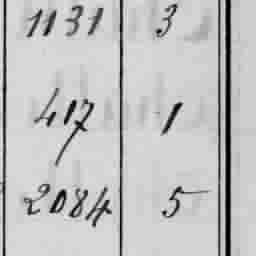 1131 3
417 1
2084 5